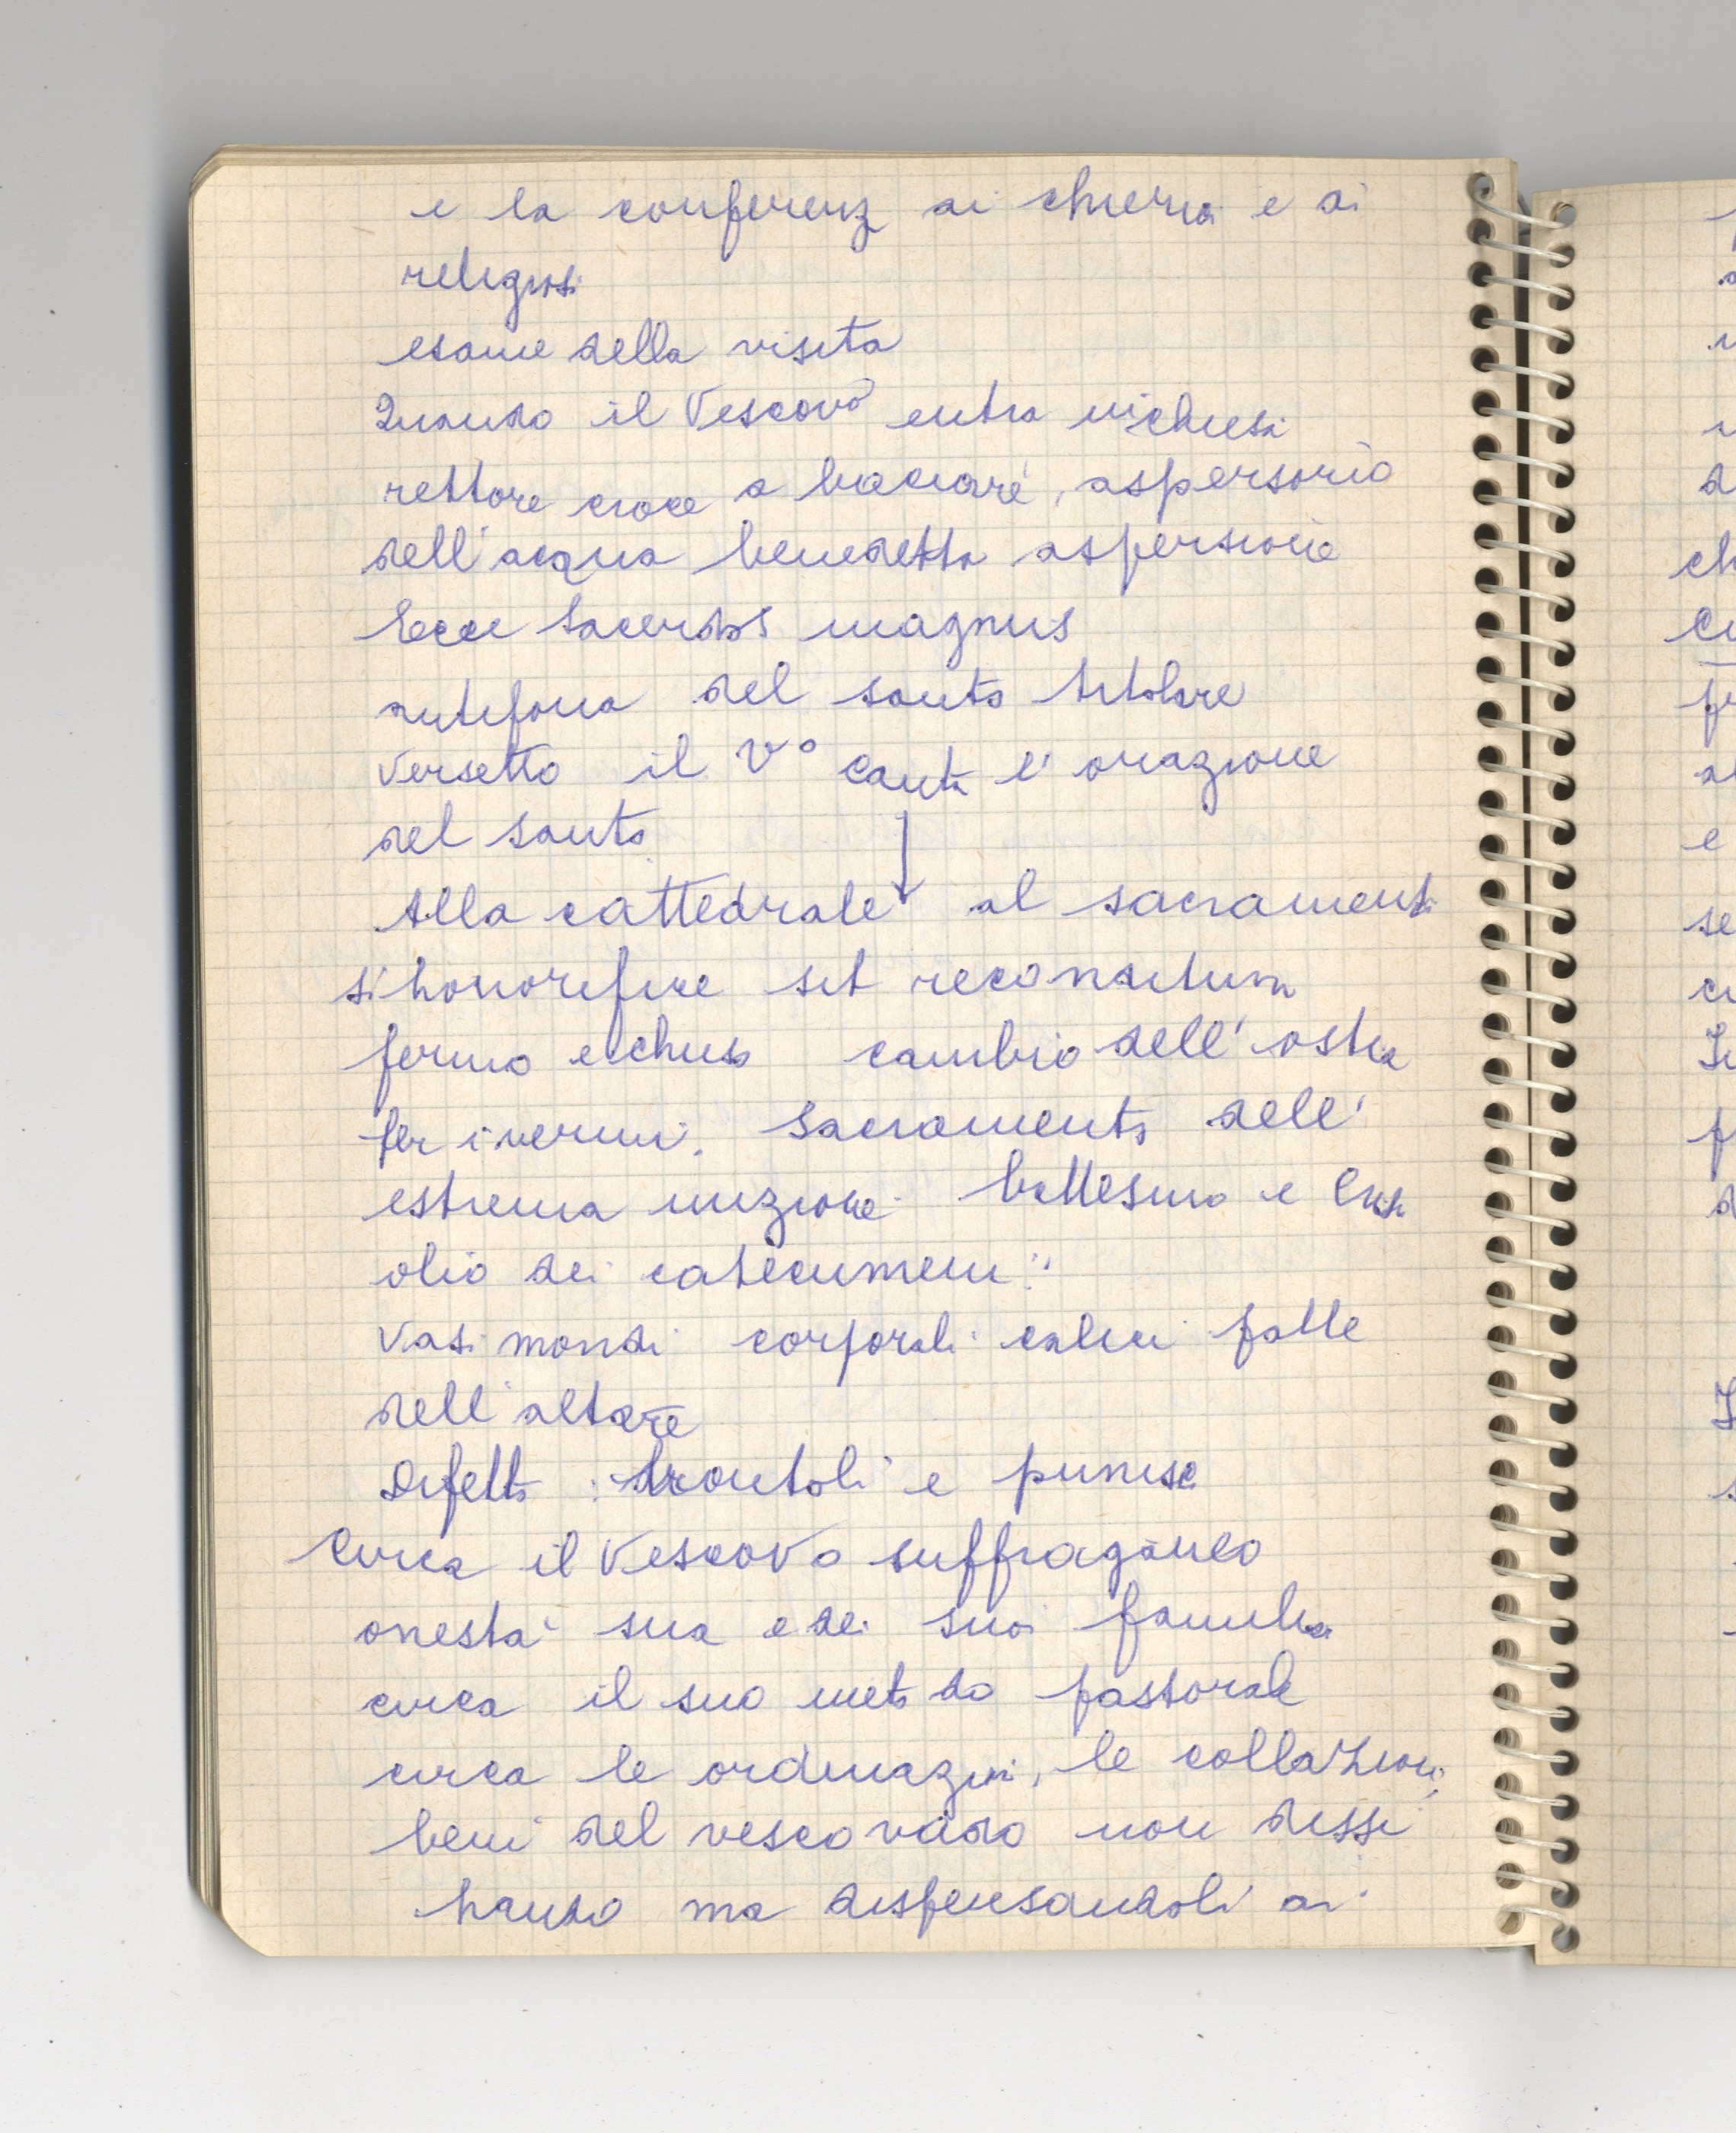 e la conferenz ai chierici e ai
religiosi
esame della visita
Quando il Vescovo entra in chiesa
rettore croce a baciare, aspersorio
dell'acqua benedetta aspersione
Ecce Sacerdos magnus
antifona del santo titolare
versetto il V° canta l'orazione
del santo
Alla cattedrale al sacramento
si honorifice sit reconditum
fermo e chiuso cambio dell'ostia
per i vermi. Sacramento dell'
estrema unzione battesimo e
olio dei catecumeni
Vasi mondi corporali calici
dell'altare
Difetto : e punisce
Circa il Vescovo suffraganeo
onestà sua e dei suoi famula
circa il suo metodo pastorale
circa le ordinazioni, le collazioni,
beni del vescovado non dissi
pando ma dispensandoli ai